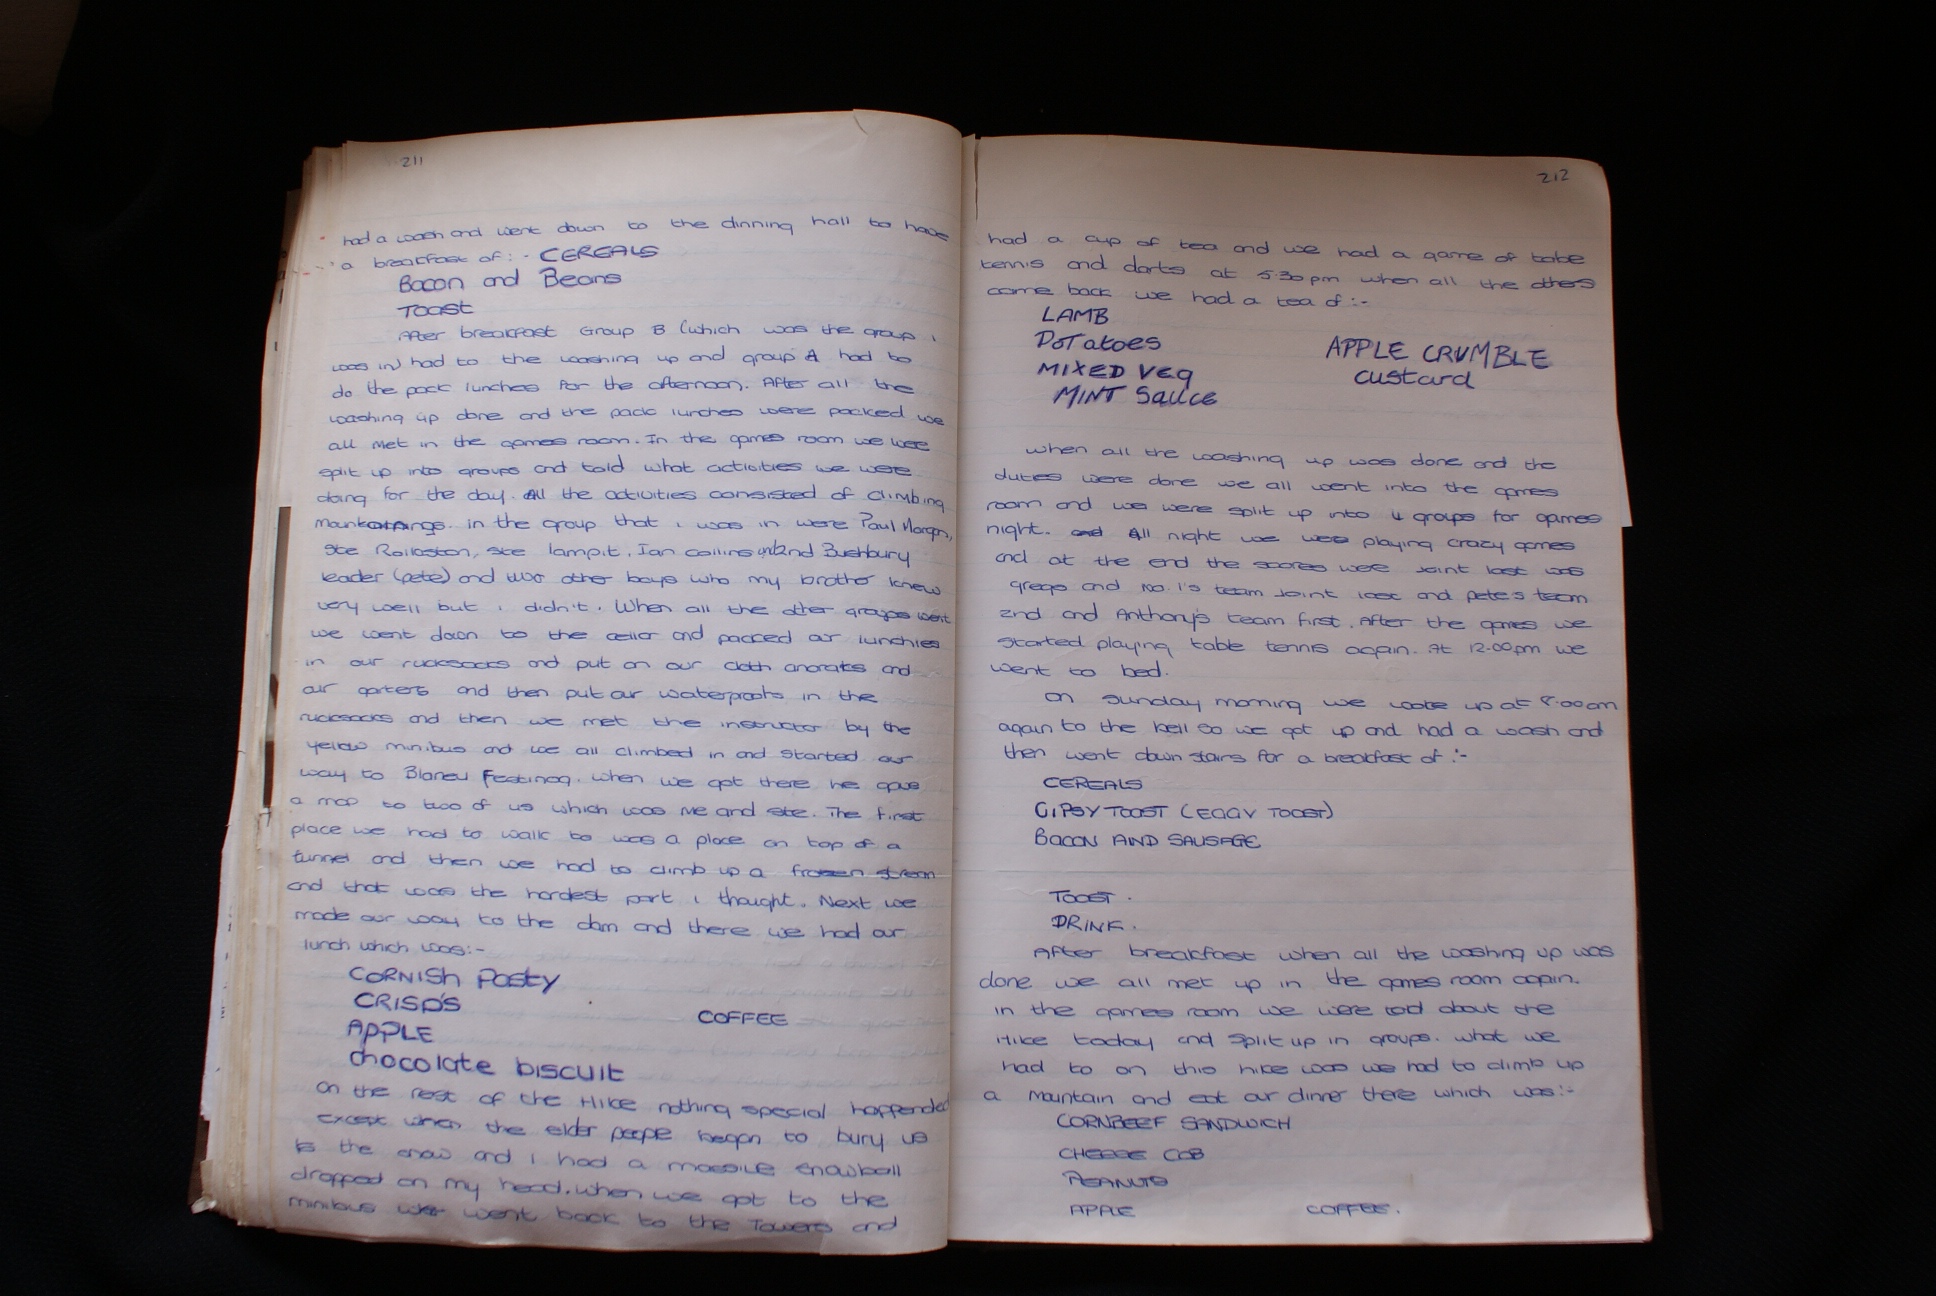 211
had a wash and went down to the dinning hall to have
a breakfast of:- CEREALS
Bacon and Beans
TOAST
After breakfast Group B (which was the group i
was in) had to the washing up and group A had to
do the pack lunches for the afternoon. After all the
washing up done and the pack lunches were packed we
all met in the games room. In the games room we were
split up into groups and told what activities we were
doing for the day. All the activities consisted of climbing
in the group that i was in were Paul Morgan,
Ste Rollaston, Ste lampit, Ian collins 2nd Bushbury
leader (pete) and two other boys who my brother knew
very well but i didn't. When all the other groups went
we went down to the cellar and packed our lunchies
in our rucksacks and put on our cloth anoraks and
our gaiters and then put our waterproofs in the
rucksacks and then we met the instructor by the
yellow minibus and we all climbed in and started our
way to Blaneu Festinog. when we got there he gave
a map to two of us which was me and ste. The first
place we had to walk to was a place on top of a
tunnel and then we had to climb up a frozen stream
and that was the hardest part i thought. Next we
made our way to the dam and there we had our
lunch which was:-
CORNISH Pasty
CRISPS
COFFEE
APPLE
chocolate biscuit
on the rest of the Hike nothing special happended
except when the elder people began to bury us
in the snow and I had a massive snowball
dropped on my head. when we got to the
minibus we went back to the Towers and
212
had a cup of tea and we had a game of table
tennis and darts at 5.30pm when all the others
came back we had a tea of:-
LAMB
POTatoes
APPLE CRUMBLE
MIXED Veg
custard
MINT Sauce
when all the washing up was done and the
duties were done we all went into the games
room and we were split up into 4 groups for games
night. and All night we were playing crazy games
and at the end the scores were Joint last was
gregs and no.1's team Joint last and pete's team
2nd and Anthony's team first. After the games we
started playing table tennis again. At 12.00pm we
went to bed.
On sunday morning we woke up at 8.00am
again to the bell so we got up and had a wash and
then went down stairs for a breakfast of :-
CEREALS
GIPSY TOAST (EGGY TOAST)
BACON AND SAUSAGE
TOAST.
DRINK.
After breakfast when all the washing up was
done we all met up in the games room again.
in the games room we were told about the
Hike today and split up in groups. what we
had to on this hike was we had to climb up
a mountain and eat our dinner there which was:-
CORNBEEF SANDWICH
CHEESE COB
PEANUTS
APPLE COFFEE.